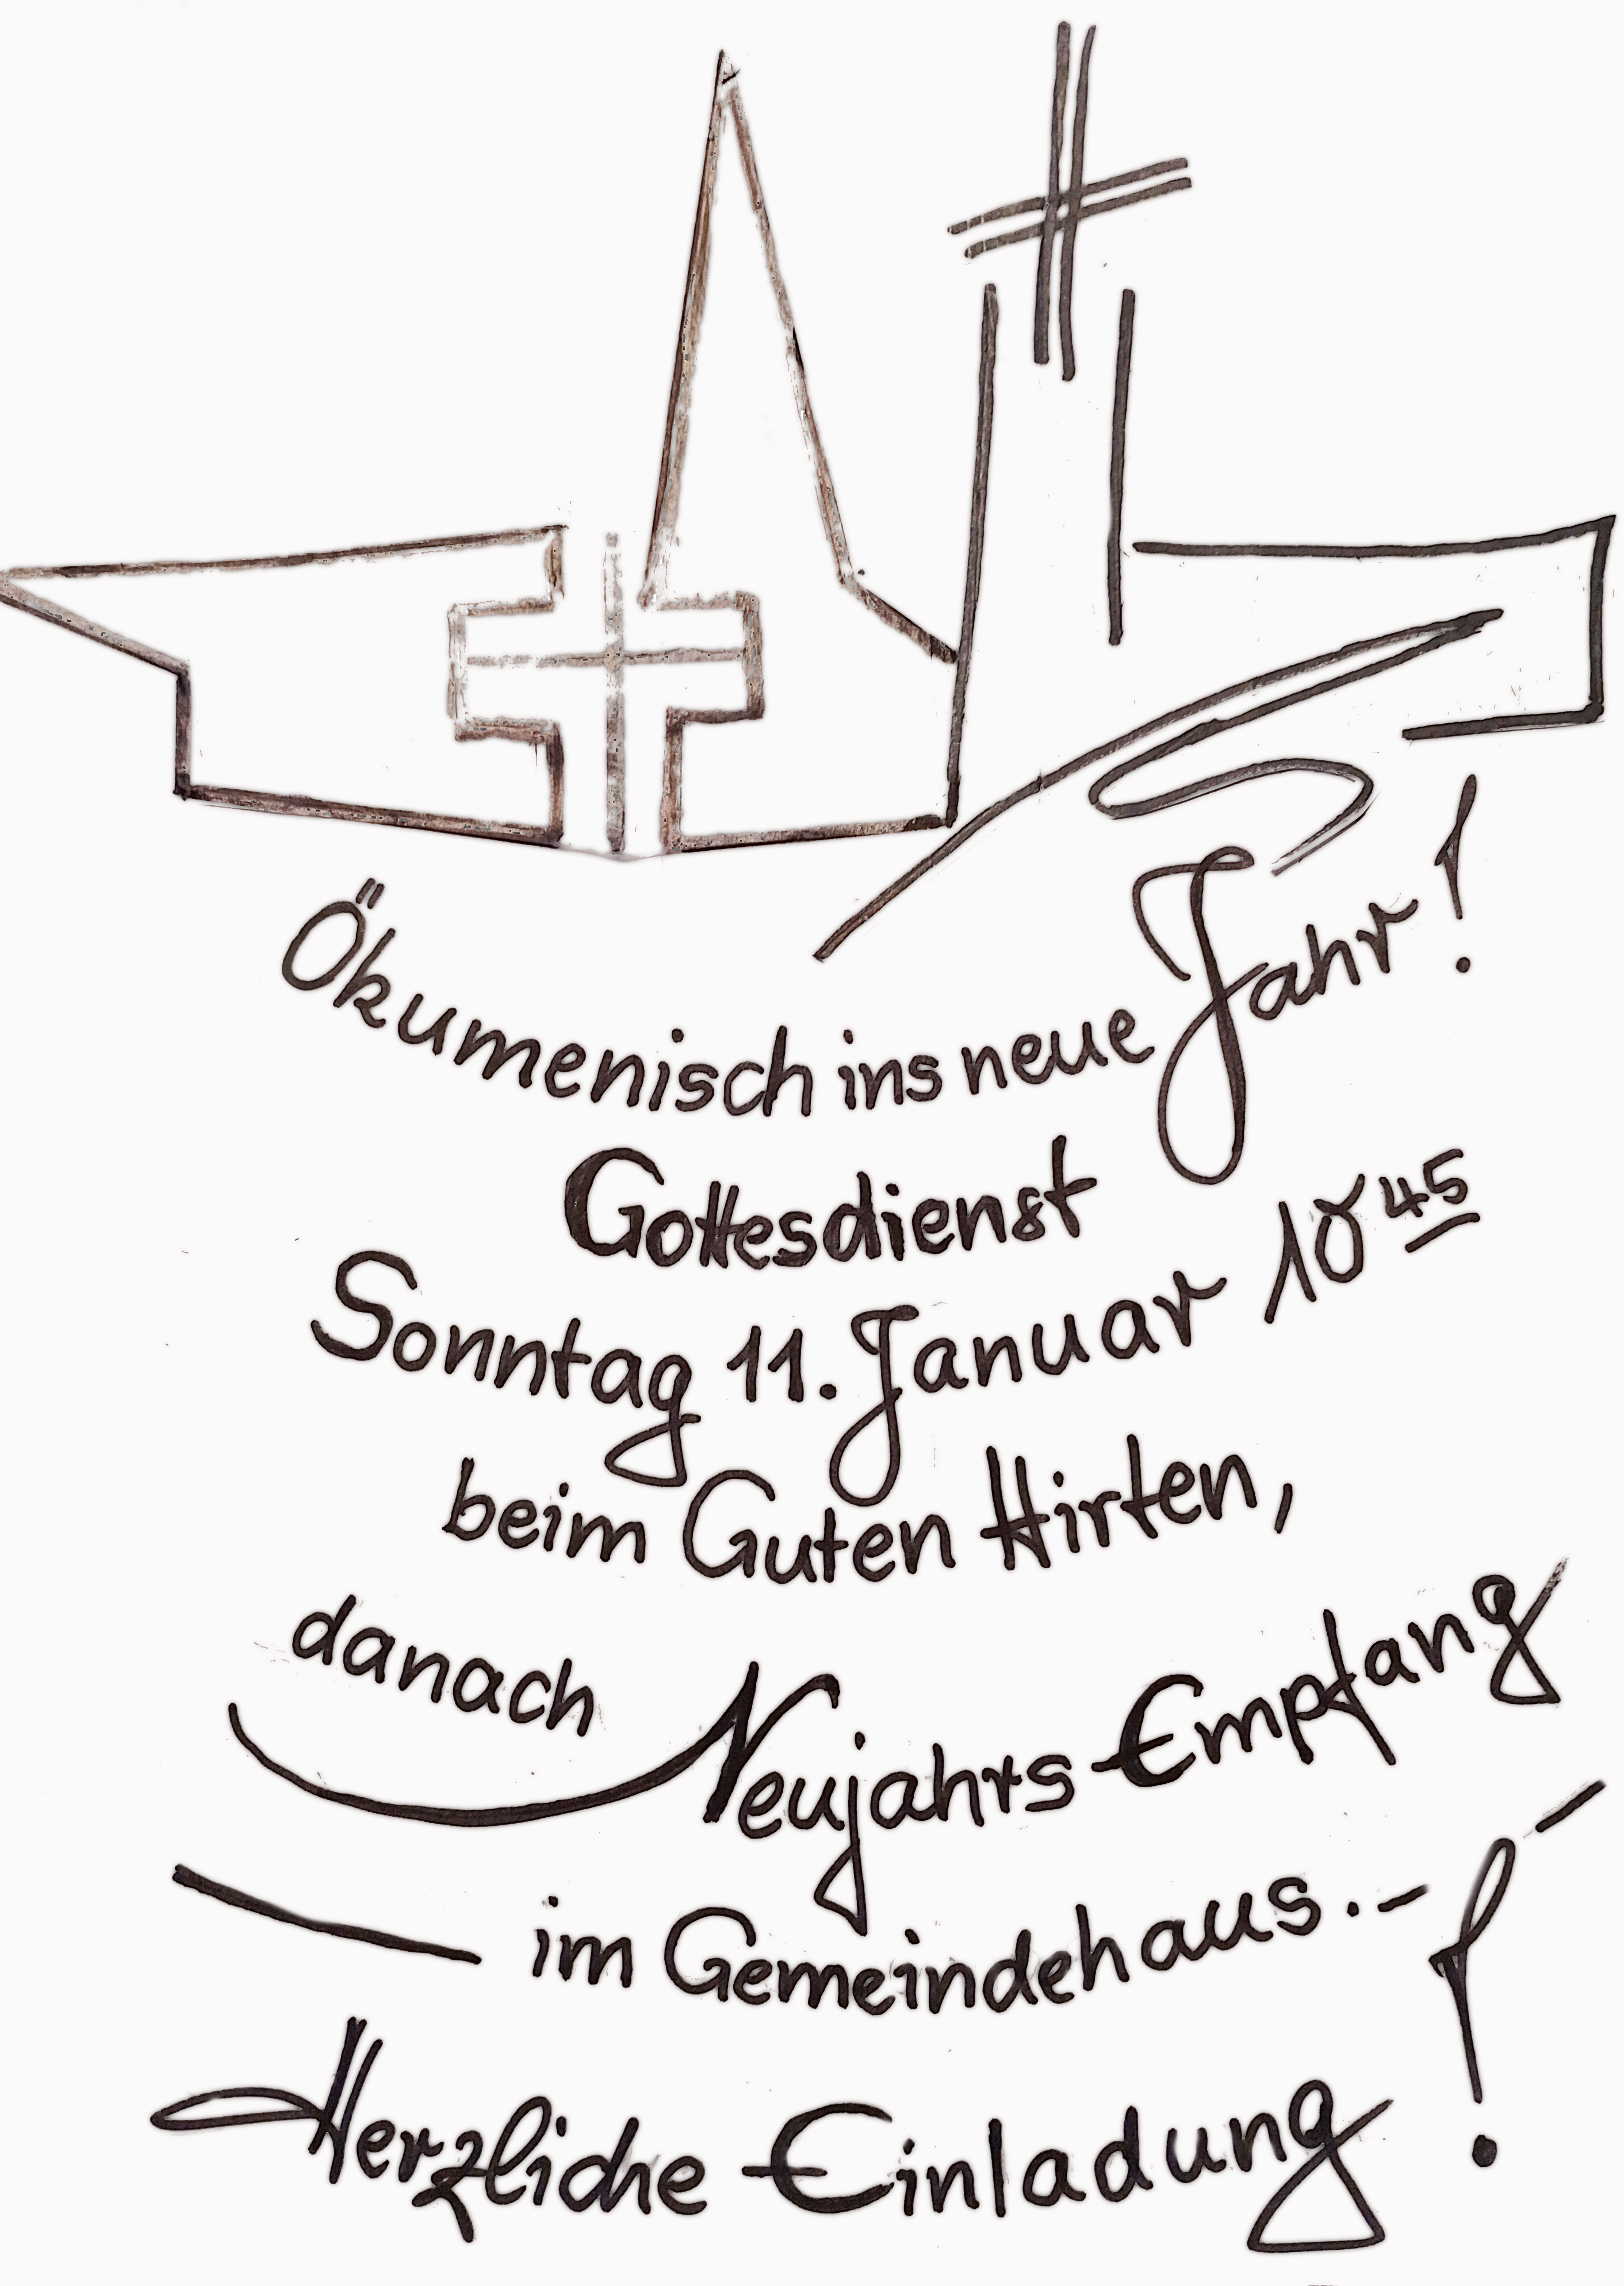 Ökumenisch ins neue Jahr!
Gottesdienst
Sonntag 11. Januar 10 45
beim Guten Hirten,
danach Neujahrs-Empfang
im Gemeindehaus.-
Herzliche Einladung!